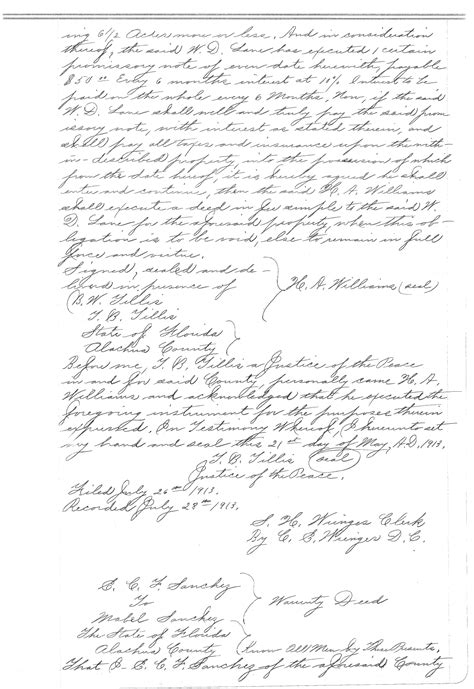 ing 6 1/2 Acres more or less. And in consideration
thereof, the said W. D. Lane has executed 1 certain
promissory note of even date herewith payable
$50 00 Every 6 months interest at 10% Interest to be
paid on the whole every 6 Months. Now, if the said
W. D. Lane shall well and truly pay the said prom
issory note, with interest as stated therein, and
shall pay all taxes and insurance upon the with-
in-described property, into the possession of which
from the date hereof, it is hereby agreed he shall
enter and continue, then the said H. A. Williams
shall execute a deed in fee simple to the said W.
D. Lane for the aforesaid property, when this ob-
ligation is to be void, else to remain in full
force and virtue.
Signed, sealed and de-
livered in presence of
H. A. Williams (seal)
B. W. Tillis
T. B. Tillis
State of Florida
Alachua County
Before me, T. B. Tillis a Justice of the Peace
in and for said County, personally came H. A.
Williams and acknowledged that he executed the
foregoing instrument for the purposes therein
expressed. In Testimony Whereof, I hereunto set
my hand and seal this 21st day of May, A.D. 1913.
T. B. Tillis (seal)
Justice of the Peace.
Filed July 26th 1913.
Recorded July 28th 1913.
S. H. Wienges Clerk
By C. E. Wienges D.C.
E. C. F. Sanchez
To
Mabel Sanchez
Warranty Deed
The State of Florida
Alachua County
Know All Men by These Presents,
That I E. C. F. Sanchez of the aforesaid County